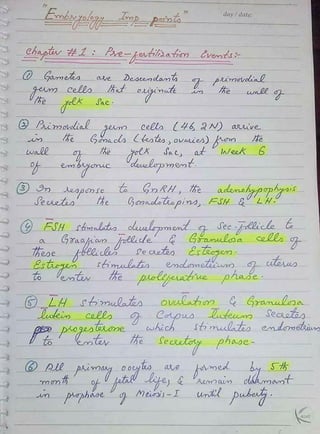 "Embryology Imp points"
day / date:
Chapter #1 : Pre-fertilization Events:-
① Gametes are Descendants of primordial
germ cells that originate in the wall of
the yolk Sac.
② Primordial germ cells (46, 2N) arrive
in the Gonads (testes, ovaries) from the
wall of the yolk Sac, at Week 6
of embryonic development.
③ In response to GnRH, the adenohypophysis
Secretes the Gonadotropins, FSH & LH.
④ FSH stimulates development of Sec. follicle to
a Graafian follicle & Granulosa cells of
these follicles secretes Estrogen.
Estrogen stimulates endometrium of uterus
to enter the proliferative phase.
⑤ LH stimulates ovulation & Granulosa
lutein cells of Corpus luteum Secretes
progesterone which stimulates endometrium
to enter the Secretory phase.
⑥ All primary oocytes are formed by 5th
month of fetal life, & remain dormant
in prophase of Meiosis-I until puberty.